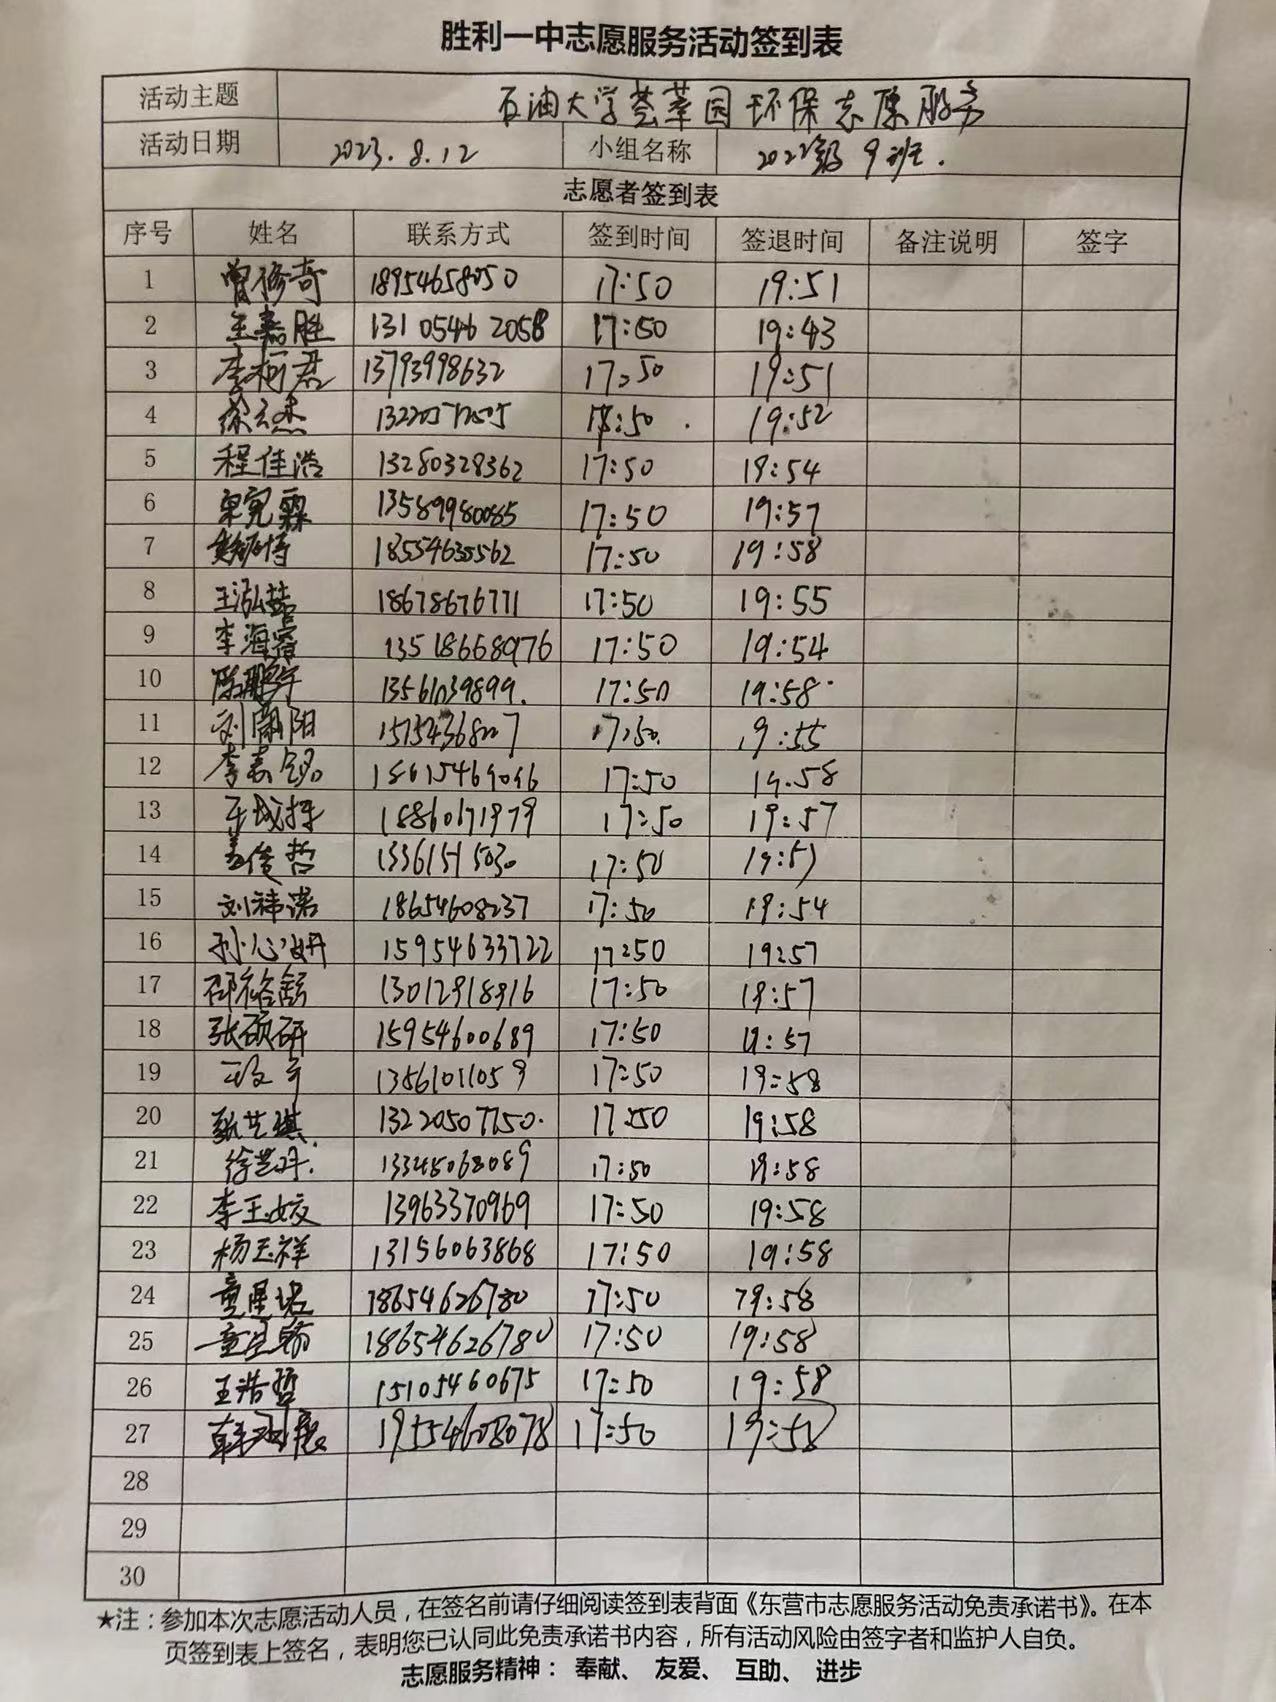 胜利一中志愿服务活动签到表
活动主题 石油大学荟萃园环保志愿服务
活动日期 2023.8.12 小组名称 2022级9班.
志愿者签到表
序号 姓名 联系方式 签到时间 签退时间 备注说明 签字
1 曾修奇 18954658050 17:50 19:51
2 王嘉胜 13105462058 17:50 19:43
3 李柯君 13793998632 17:50 19:51
4 徐云杰 17:50 19:52
5 程佳浩 13280328362 17:50 19:54
6 宋宛霖 13589980085 17:50 19:57
7 18554635562 17:50 19:58
8 王泓喆 18678676771 17:50 19:55
9 李海睿 13518668976 17:50 19:54
10 陈鹏宇 13561039899. 17:50 19:58
11 刘朝阳 17:50 19:55
12 李春铭 18615469096 17:50 19:58
13 18860171979 17:50 19:57
14 姜俊哲 13361515030 17:50 19:57
15 刘祎诺 18654608237 17:50 19:54
16 孙心妍 15954633722 17:50 19:57
17 邵裕舒 13012918916 17:50 19:57
18 张硕研 15954600689 17:50 19:57
19 13561011059 17:50 19:58
20 甄艺琪 13220507150. 17:50 19:58
21 13345068089 17:50 19:58
22 李玉姣 13963370969 17:50 19:58
23 杨玉祥 13156063868 17:50 19:58
24 童星珺 18654626780 17:50 19:58
25 童星翰 18654626780 17:50 19:58
26 王浩哲 15105460675 17:50 19:58
27 19554608078 17:50 19:58
28
29
30
★注：参加本次志愿活动人员，在签名前请仔细阅读签到表背面《东营市志愿服务活动免责承诺书》。在本
页签到表上签名，表明您已认同此免责承诺书内容，所有活动风险由签字者和监护人自负。
志愿服务精神： 奉献、 友爱、 互助、 进步